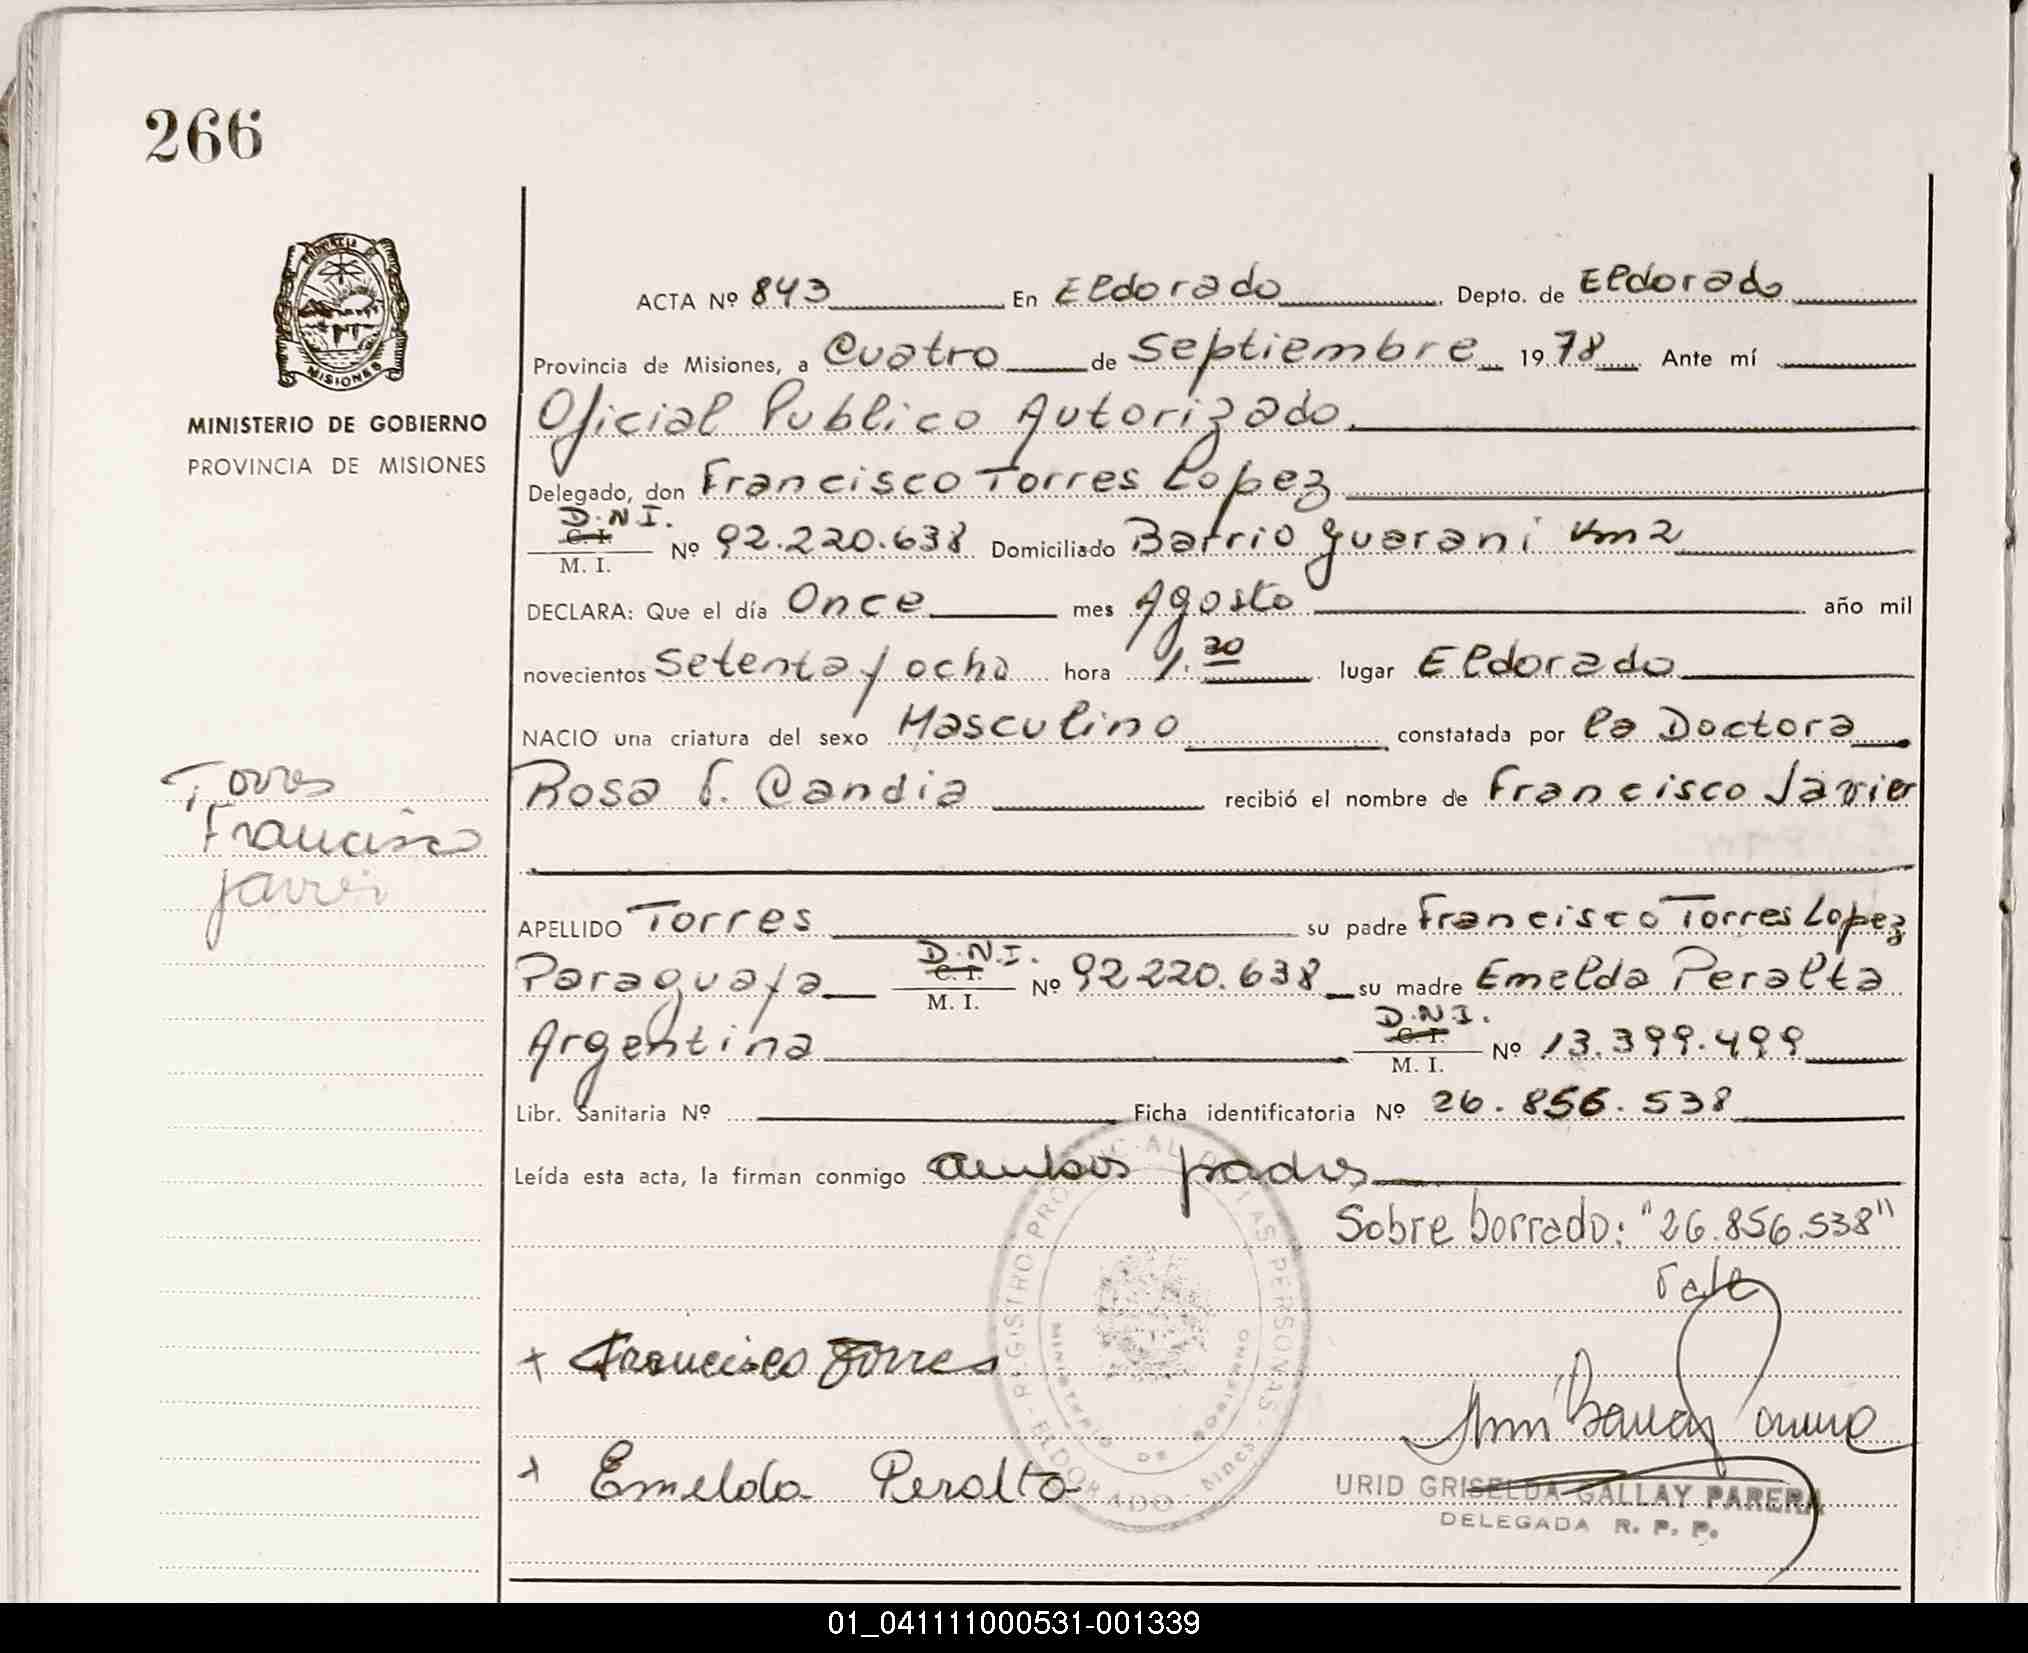 266
PROVINCIA D
MISIONES
MINISTERIO DE GOBIERNO
PROVINCIA DE MISIONES
ACTA Nº 843 En Eldorado Depto. de Eldorado
Provincia de Misiones, a Cuatro de Septiembre 1978 Ante mí
Oficial Publico Autorizado
Delegado, don Francisco Torres Lopez
D.N.I.
C. I.
M. I.
Nº 92.220.638 Domiciliado Barrio Guarani Km 2
DECLARA: Que el día Once mes Agosto año mil
novecientos Setenta y ocho hora 1.30 lugar Eldorado
NACIO una criatura del sexo Masculino constatada por la Doctora
Rosa F. Candia recibió el nombre de Francisco Javier
Torres
Francisco
Javier
APELLIDO Torres su padre Francisco Torres Lopez
Paraguaya D.N.I. C. I. M. I. Nº 92220.638 su madre Emelda Peralta
Argentina D.N.I. C. I. M. I. Nº 13.399.499
Libr. Sanitaria Nº Ficha identificatoria Nº 26.856.538
Leída esta acta, la firman conmigo ambos padres
Sobre borrado: "26.856.538"
Vale
REGISTRO PROVINCIAL DE LAS PERSONAS - ELDORADO - Mnes
MINISTERIO DE GOBIERNO
+ Francisco Torres
+ Emelda Peralta
URID GRISELDA GALLAY PARERA
DELEGADA R. P. P.
01_041111000531-001339